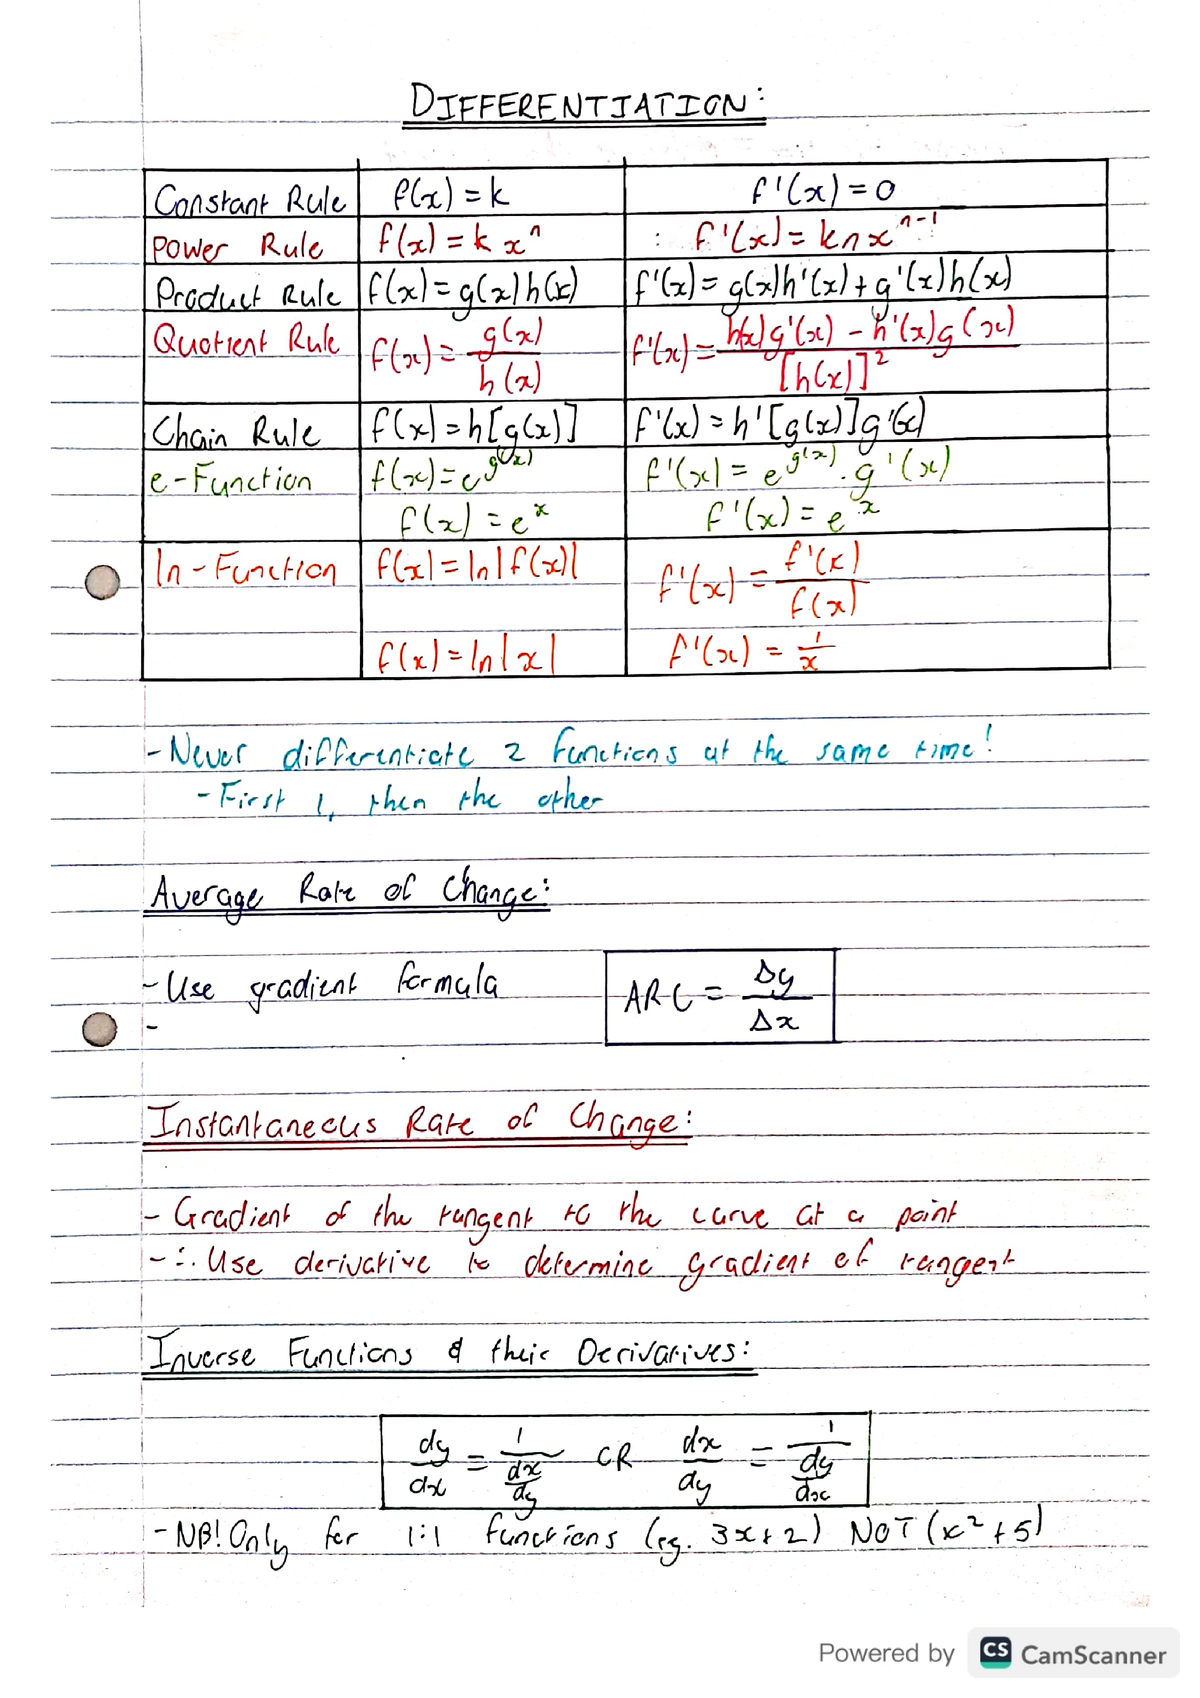 DIFFERENTIATION:
Constant Rule f(x) = k f'(x) = 0
Power Rule f(x) = k xⁿ : f'(x) = knxⁿ⁻¹
Product Rule f(x) = g(x)h(x) f'(x) = g(x)h'(x) + g'(x)h(x)
Quotient Rule f(x) = g(x)/h(x) f'(x) = h(x)g'(x) - h'(x)g(x)/[h(x)]²
Chain Rule f(x) = h[g(x)] f'(x) = h'[g(x)]g'(x)
e-Function f(x) = e^g(x) f'(x) = e^g(x) . g'(x)
f(x) = eˣ f'(x) = eˣ
ln-Function f(x) = ln|f(x)| f'(x) = f'(x)/f(x)
f(x) = ln|x| f'(x) = 1/x
- Never differentiate 2 functions at the same time!
- First 1, then the other
Average Rate of Change:
- Use gradient formula ARC = Δy/Δx
-
Instantaneous Rate of Change:
- Gradient of the tangent to the curve at a point
- ∴ Use derivative to determine gradient of tangent
Inverse Functions & their Derivatives:
dy/dx = 1/(dx/dy) OR dx/dy = 1/(dy/dx)
- NB! Only for 1:1 functions (eg. 3x+2) NOT (x²+5)
Powered by CS CamScanner